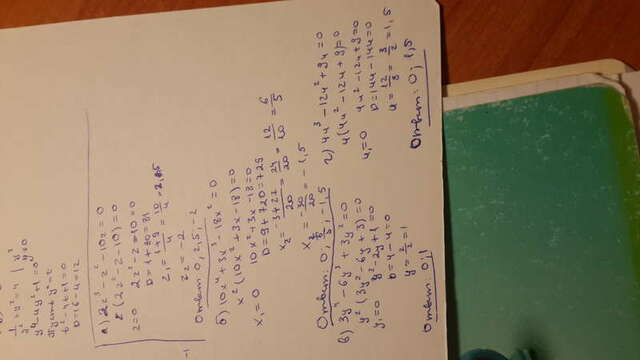 1/y² + y² = 4 | y²
y≠0
y⁴-4y²+1=0
Пусть y²=t
t²-4t+1=0
D=16-4=12
а) 2z³-z²-10z=0
z(2z²-z-10)=0
z=0 2z²-z-10=0
D=1+80=81
z₁=(1+9)/4=10/4=2,5
z₂=-2
Ответ: 0, 2,5, -2
б) 10x⁴+3x³-18x²=0
x²(10x²+3x-18)=0
x₁=0 10x²+3x-18=0
D=9+720=729
x₂=(-3+27)/20=24/20=12/10=6/5
x₂=-30/20=-1,5
Ответ: 0, 6/5, -1,5
в) 3y⁴-6y³+3y²=0
y²(3y²-6y+3)=0
y₁=0 y²-2y+1=0
D=4-4=0
y=2/2=1
Ответ: 0;1
г) 4u³-12u²+9u=0
u(4u²-12u+9)=0
u₁=0 4u²-12u+9=0
D=144-144=0
u=12/8=3/2=1,5
Ответ: 0; 1,5
-1